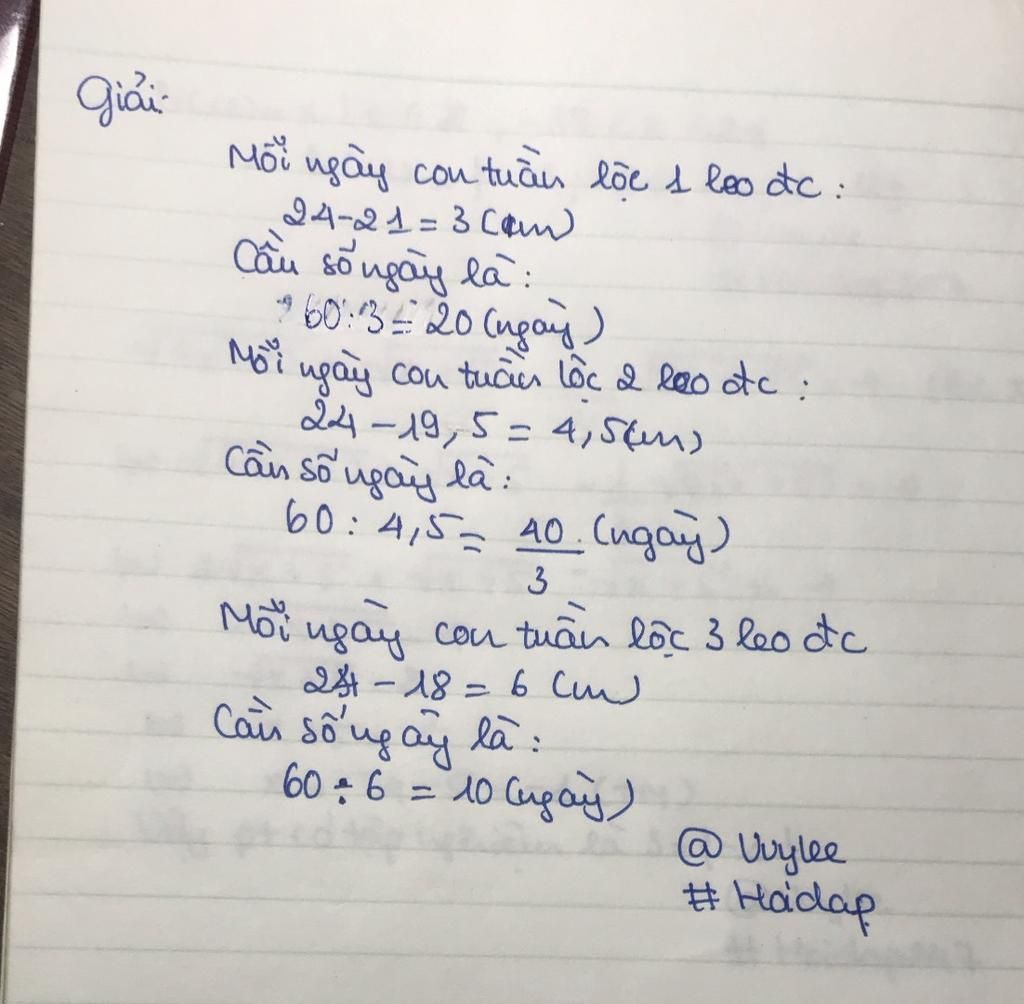 Giải:
Mỗi ngày con tuần lộc 1 leo đc :
24-21 = 3 (cm)
Cần số ngày là :
60 : 3 = 20 (ngày)
Mỗi ngày con tuần lộc 2 leo đc :
24 - 19,5 = 4,5 (m)
Cần số ngày là :
60 : 4,5 = 40/3 (ngày)
Mỗi ngày con tuần lộc 3 leo đc
24 - 18 = 6 (m)
Cần số ngày là :
60 ÷ 6 = 10 (ngày)
@ Vvylee
# Hoidap